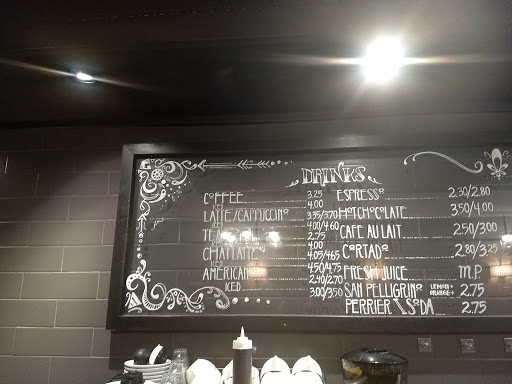 DRINKS
COFFEE
3.25
4.00
LATTE/CAPPUCCINO
3.35/3.70
4.00/4.60
2.75
4.00
CHAI LATTE
4.05/4.65
4.50/4.75
AMERICAN
2.40/2.70
ICED
3.00/3.50
ESPRESSO 2.30/2.80
HOT CHOCOLATE 3.50/4.00
CAFE AU LAIT 2.50/3.00
CORTADO 2.80/3.25
FRESH JUICE M.P
SAN PELLIGRINO LEMON + ORANGE + 2.75
PERRIER \ SODA 2.75